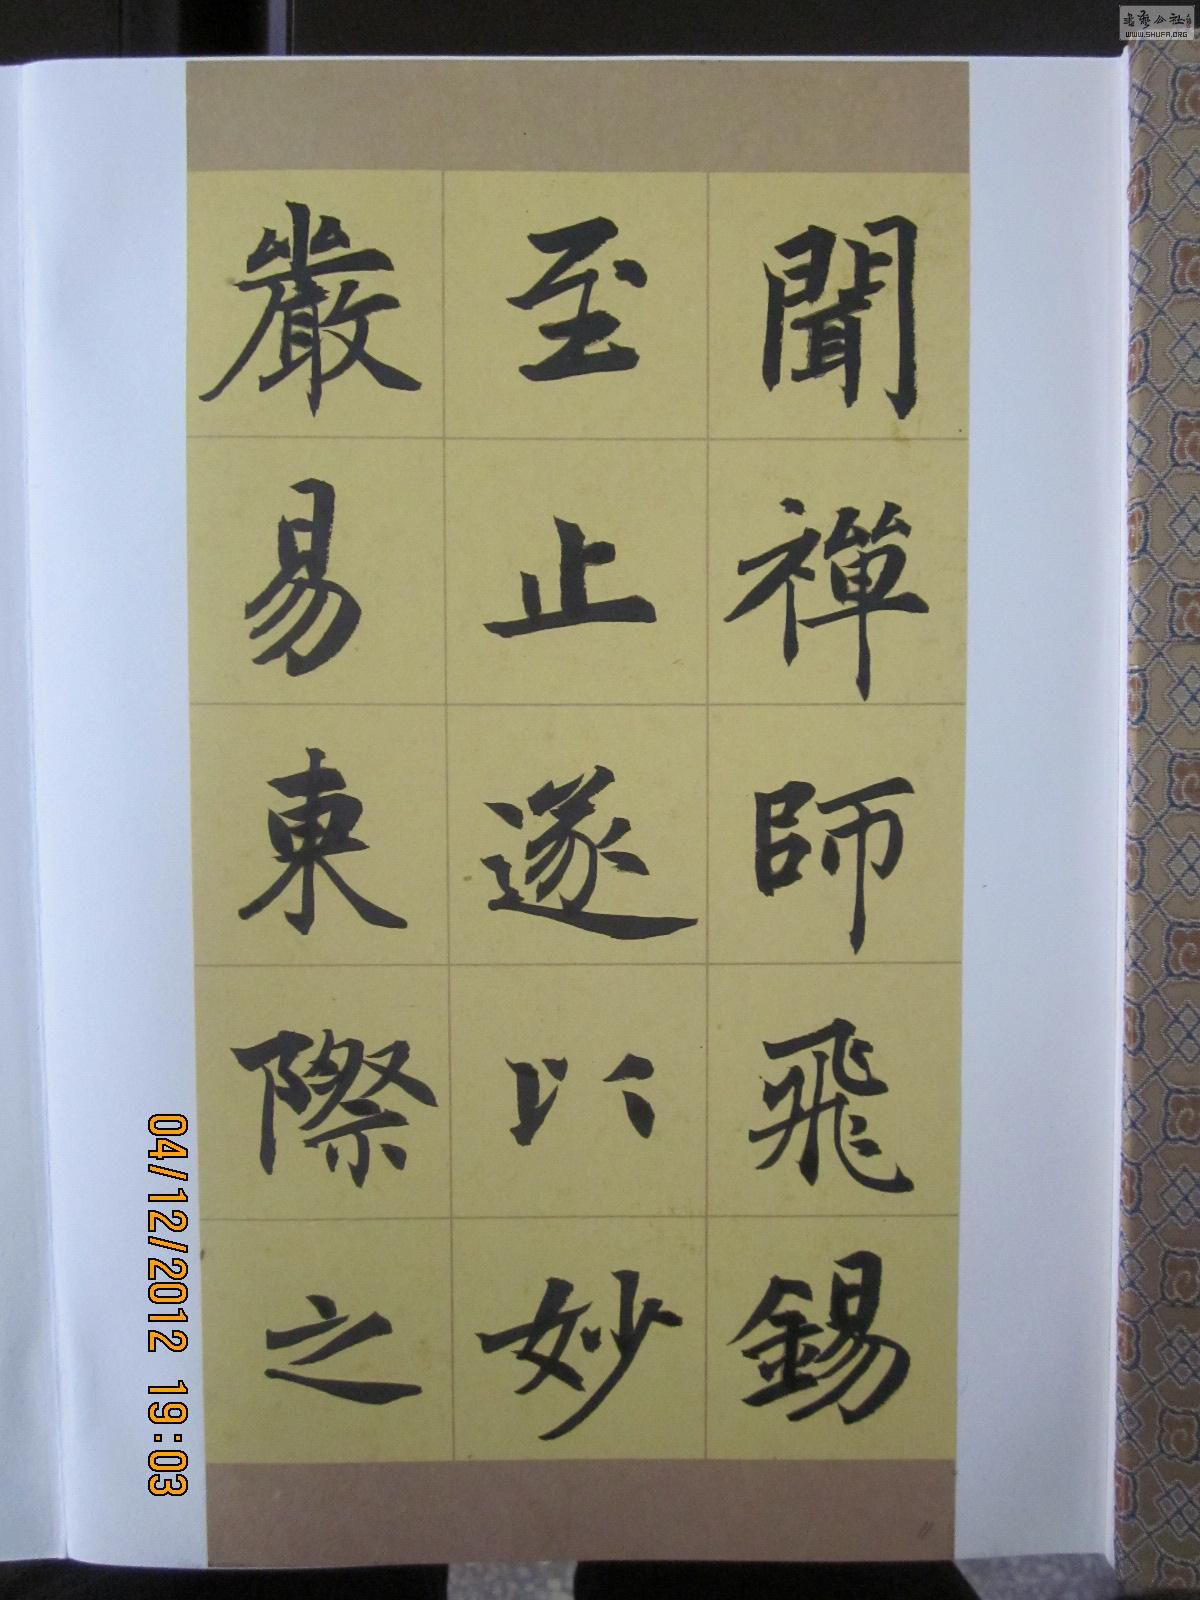 聞禪師飛錫
至止遂以妙
嚴易東際之
04/12/2012 19:03
書藝公社
WWW.SHUFA.ORG